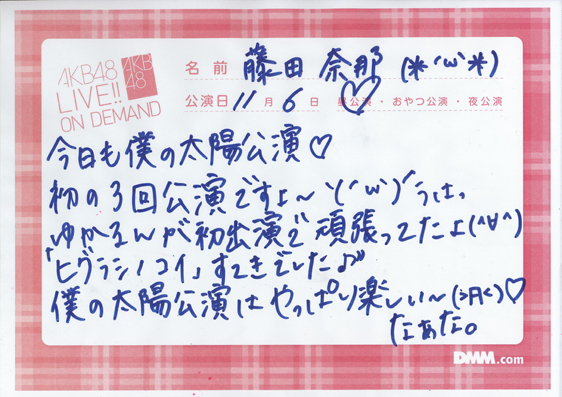 AKB48
LIVE!!
ON DEMAND
AKB
48
名前 藤田奈那 (*´ω`*)
公演日 11月6日 昼公演・おやつ公演・夜公演
今日も僕の太陽公演♡
初の3回公演ですよ〜ヽ(´ω`)ノうはっ
ゆかるんが初出演で頑張ってたよ(^∀^)
「ヒグラシノコイ」すてきでした♪"
僕の太陽公演はやっぱり楽しい〜(>月<)♡
なぁな。
DMM.com